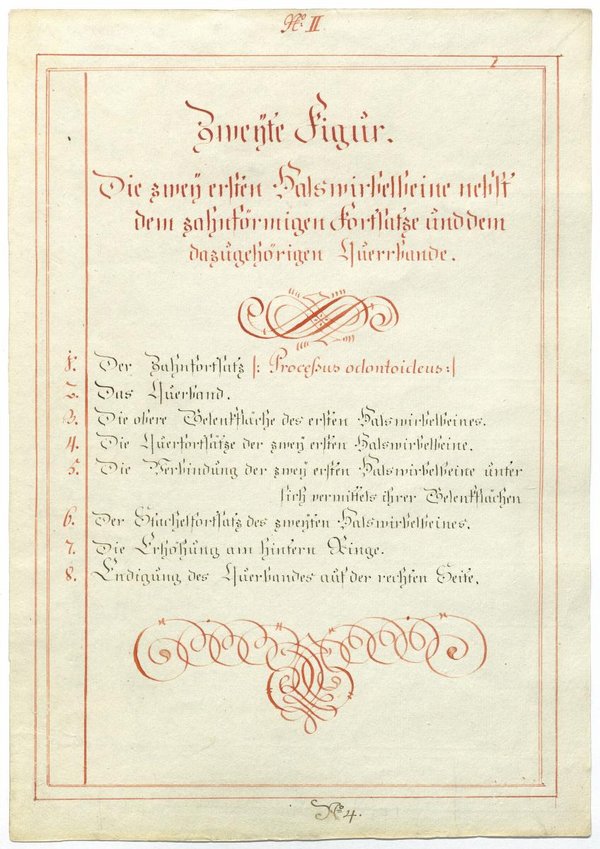 No. II
2
Zweyte Figur.
Die zwey ersten Halswirbelbeine nebst
dem zahnförmigen Fortsatze und dem
dazugehörigen Querrbande.
1. Der Zahnfortsatz |: Proceßus odontoideus :|
2. Das Querband.
3. Die obere Gelenkfläche des ersten Halswirbelbeines.
4. Die Querfortsätze der zwey ersten Halswirbelbeine.
5. Die Verbindung der zwey ersten Halswirbelbeine unter
sich vermittels ihrer Gelenkflächen
6. Der Stachelfortsatz des zweyten Halswirbelbeines.
7. Die Erhöhung am hintern Ringe.
8. Endigung des Querbandes auf der rechten Seite.
No. 4.